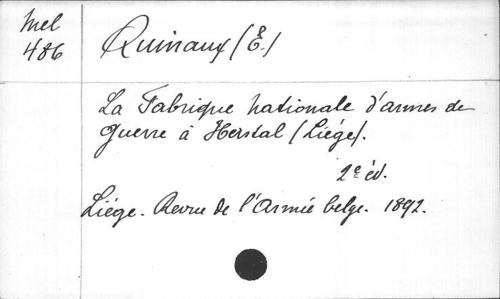 Mel
486
Quinaux (E.)
La Fabrique nationale d'armes de
guerre à Herstal (Liége).
2e éd.
Liége. Revue de l'Armée belge. 1892.